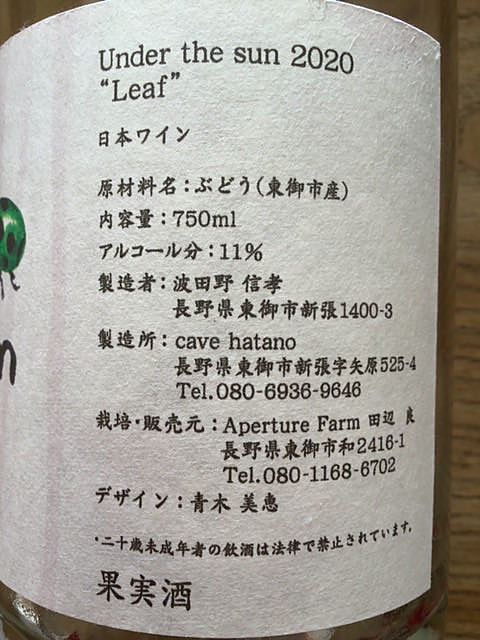 Under the sun 2020
“Leaf”
日本ワイン
原材料名：ぶどう（東御市産）
内容量：750ml
アルコール分：11%
製造者：波田野 信孝
長野県東御市新張1400-3
製造所：cave hatano
長野県東御市新張字矢原525-4
Tel.080-6936-9646
栽培・販売元：Aperture Farm 田辺 良
長野県東御市和2416-1
Tel.080-1168-6702
デザイン：青木 美恵
・二十歳未成年者の飲酒は法律で禁止されています。
果実酒